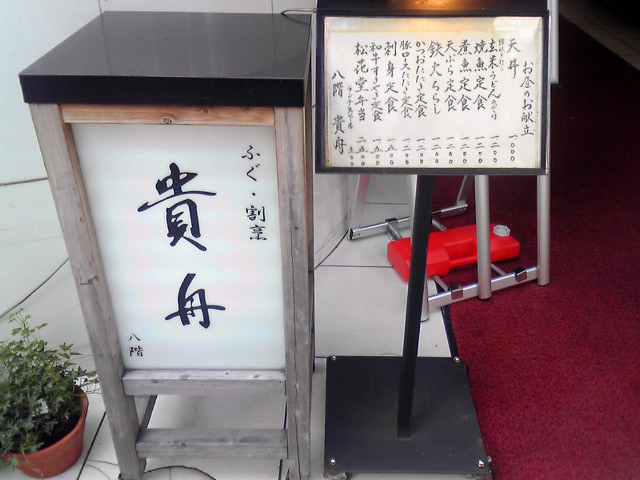 ふぐ・割烹
貴舟
八階
お昼のお献立
天丼 一〇〇〇
玄米うどん
焼魚定食 一二〇〇
煮魚定食 一二〇〇
天ぷら定食 一二〇〇
鉄火ちらし 一二〇〇
かつおたたき定食 一二〇〇
豚ロースたたき定食 一二〇〇
刺身定食
和牛すきやき定食
松花堂弁当
八階 貴舟